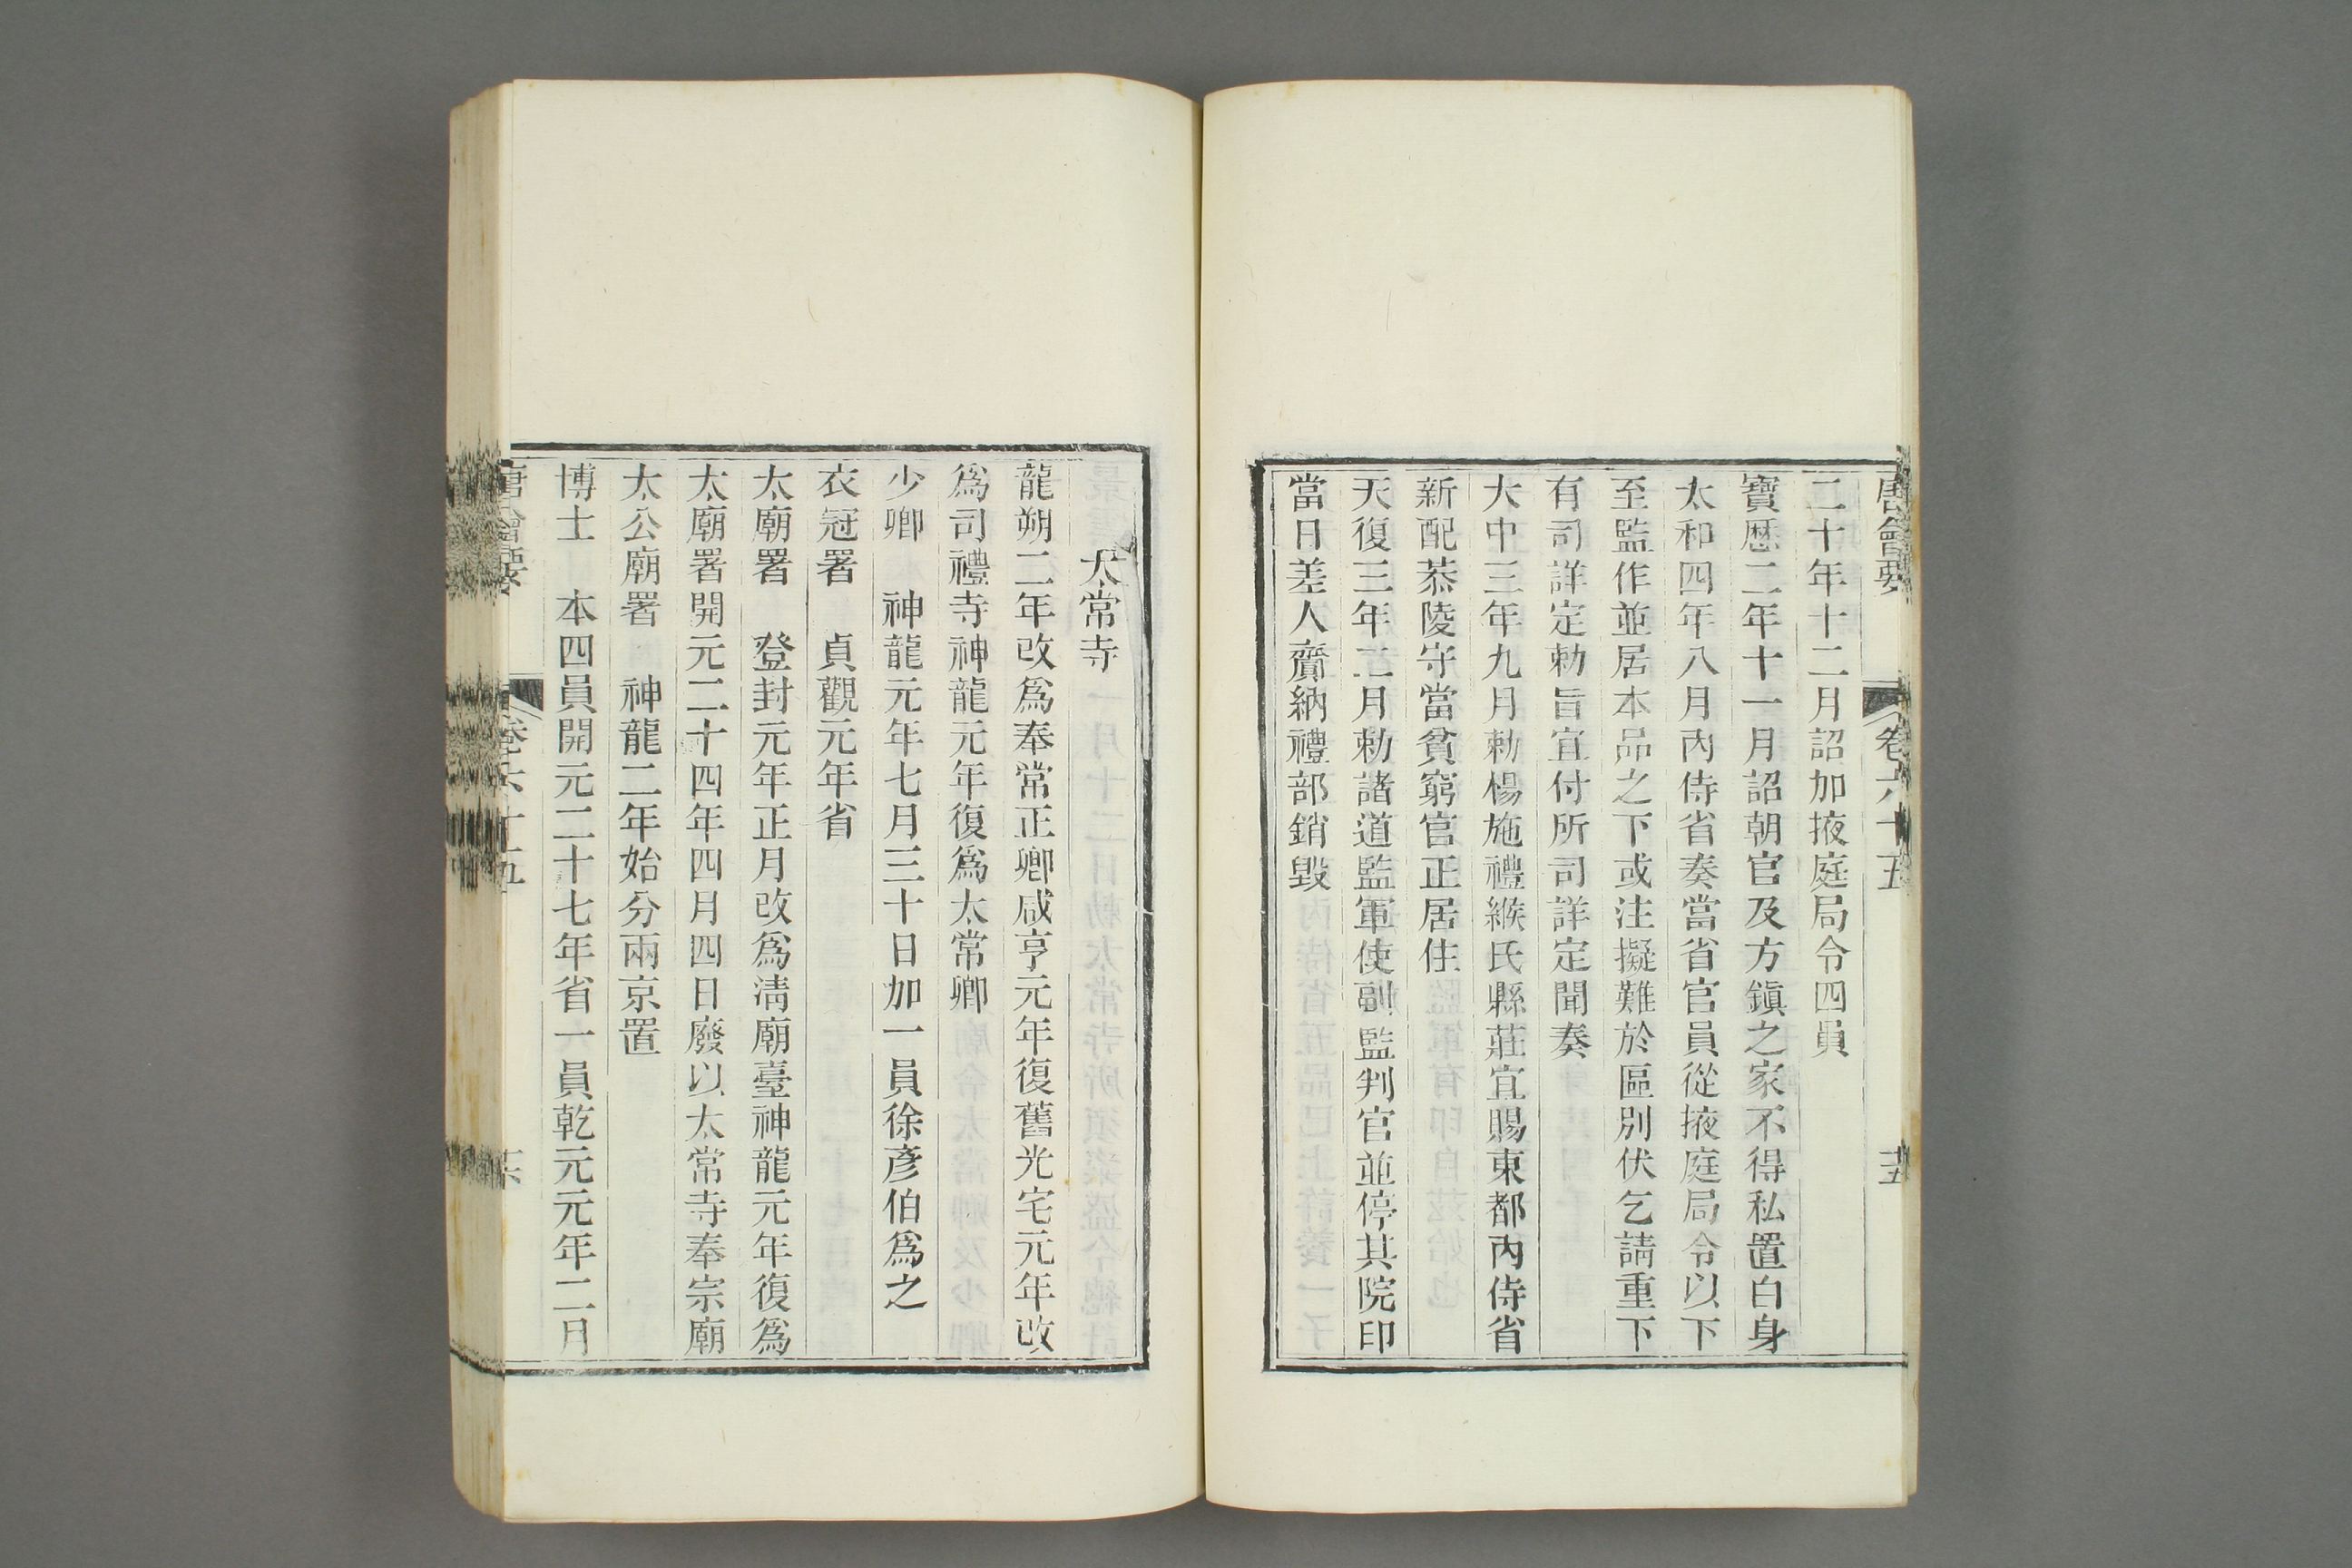 唐會要 卷六十五 十五
二十年十二月詔加掖庭局令四員
寶歷二年十一月詔朝官及方鎮之家不得私置白身
太和四年八月內侍省奏當省官員從掖庭局令以下
至監作並居本品之下或注擬難於區別伏乞請重下
有司詳定勅旨宜付所司詳定聞奏
大中三年九月勅楊施禮緱氏縣莊宜賜東都內侍省
新配恭陵守當貧窮官正居住
天復三年二月勅諸道監軍使副監判官並停其院印
當日差人齎納禮部銷毀
太常寺
龍朔二年改爲奉常正卿咸亨元年復舊光宅元年改
爲司禮寺神龍元年復爲太常卿
少卿 神龍元年七月三十日加一員徐彥伯爲之
衣冠署 貞觀元年省
太廟署 登封元年正月改爲清廟臺神龍元年復爲
太廟署開元二十四年四月四日廢以太常寺奉宗廟
太公廟署 神龍二年始分兩京置
博士 本四員開元二十七年省一員乾元元年二月
唐會要 卷六十五